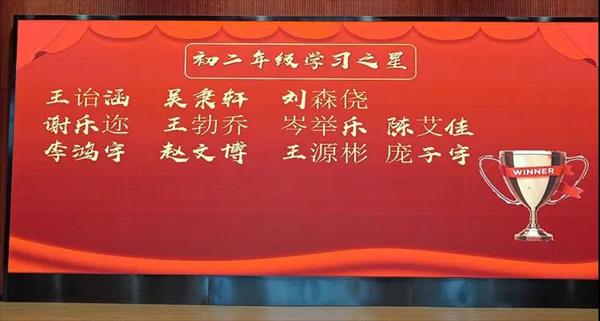 初二年级学习之星
王诒涵 吴秉轩 刘森侥
谢乐迩 王勃乔 岑举乐 陈艾佳
李鸿宇 赵文博 王源彬 庞子宇
WINNER